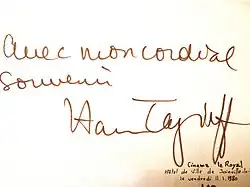 avec mon cordial
souvenir
Cinema le Royal
Hôtel de Ville de Joinville
le vendredi 11.1.1980